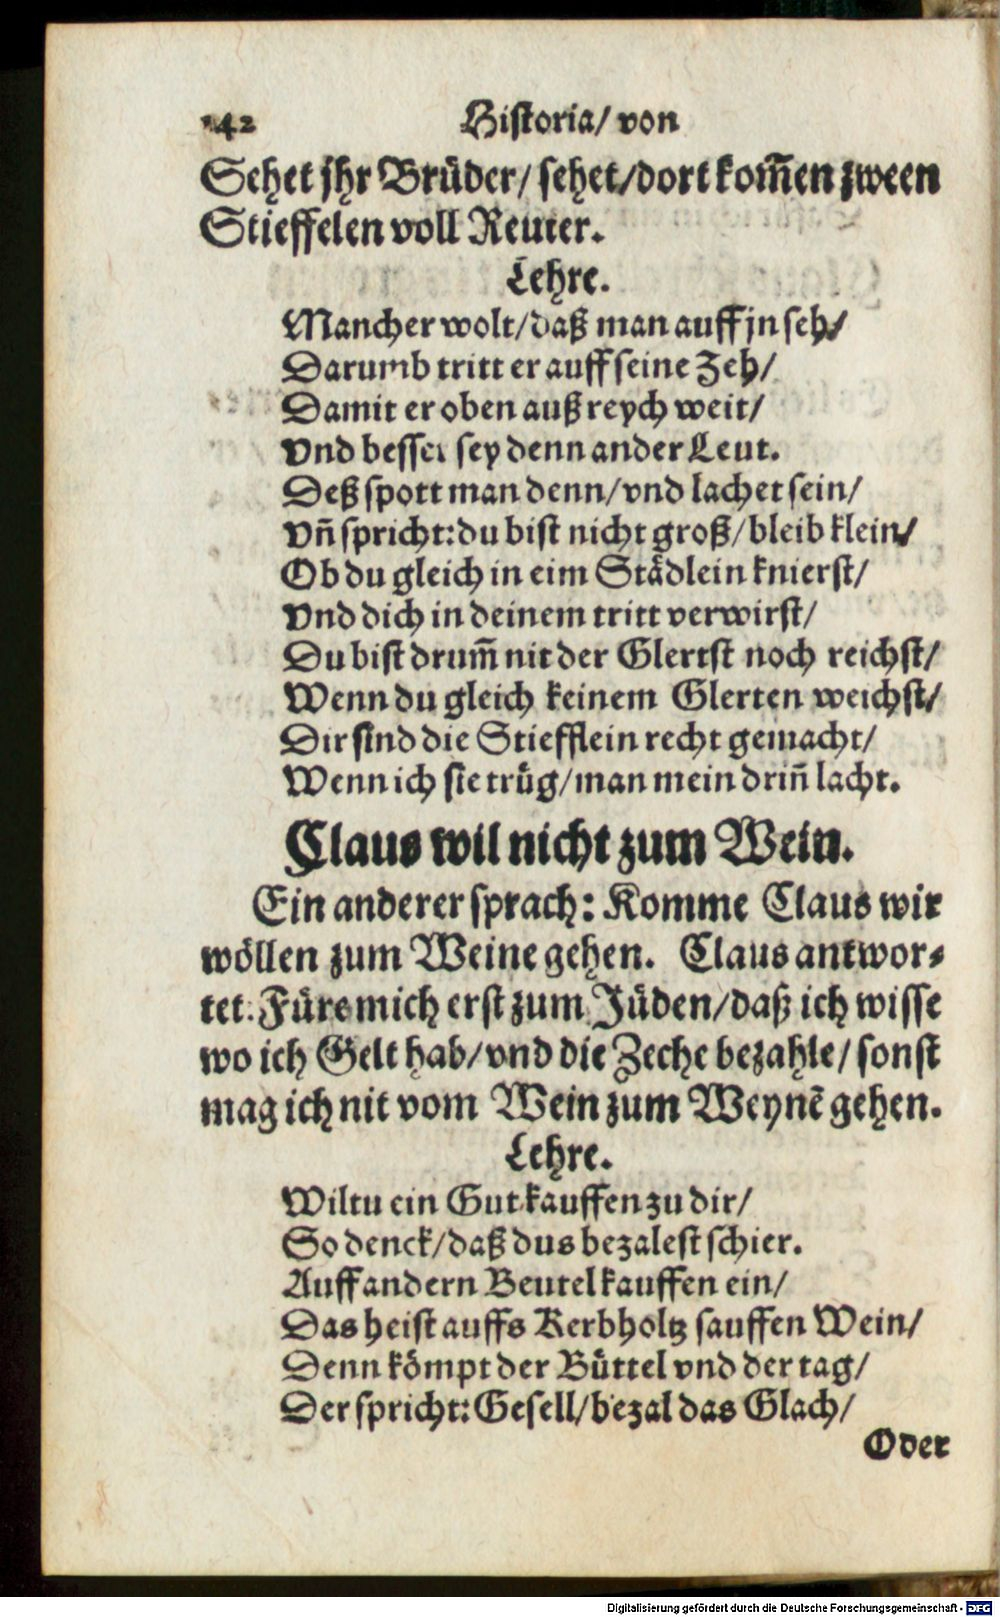 142 Historia/ von
Sehet jhr Brüder/ sehet/dort kom̃en zween
Stieffelen voll Reuter.
Lehre.
Mancher wolt/daß man auff jn seh/
Darumb tritt er auff seine Zeh/
Damit er oben auß reych weit/
Vnd besser sey denn ander Leut.
Deß spott man denn/vnd lachet sein/
Vñ spricht: du bist nicht groß/bleib klein/
Ob du gleich in eim Städlein knierst/
Vnd dich in deinem tritt verwirst/
Du bist drum̃ nit der Glertst noch reichst/
Wenn du gleich keinem Glerten weichst/
Dir sind die Stiefflein recht gemacht/
Wenn ich sie trüg/man mein driñ lacht.
Claus wil nicht zum Wein.
Ein anderer sprach: Komme Claus wir
wöllen zum Weine gehen. Claus antwor⸗
tet: Füre mich erst zum Jüden/daß ich wisse
wo ich Gelt hab/vnd die Zeche bezahle/ sonst
mag ich nit vom Wein zum Weynẽ gehen.
Lehre.
Wiltu ein Gut kauffen zu dir/
So denck/daß dus bezalest schier.
Auff andern Beutel kauffen ein/
Das heist auffs Kerbholtz sauffen Wein/
Denn kömpt der Büttel vnd der tag/
Der spricht: Gesell/bezal das Glach/
Oder
Digitalisierung gefördert durch die Deutsche Forschungsgemeinschaft - DFG